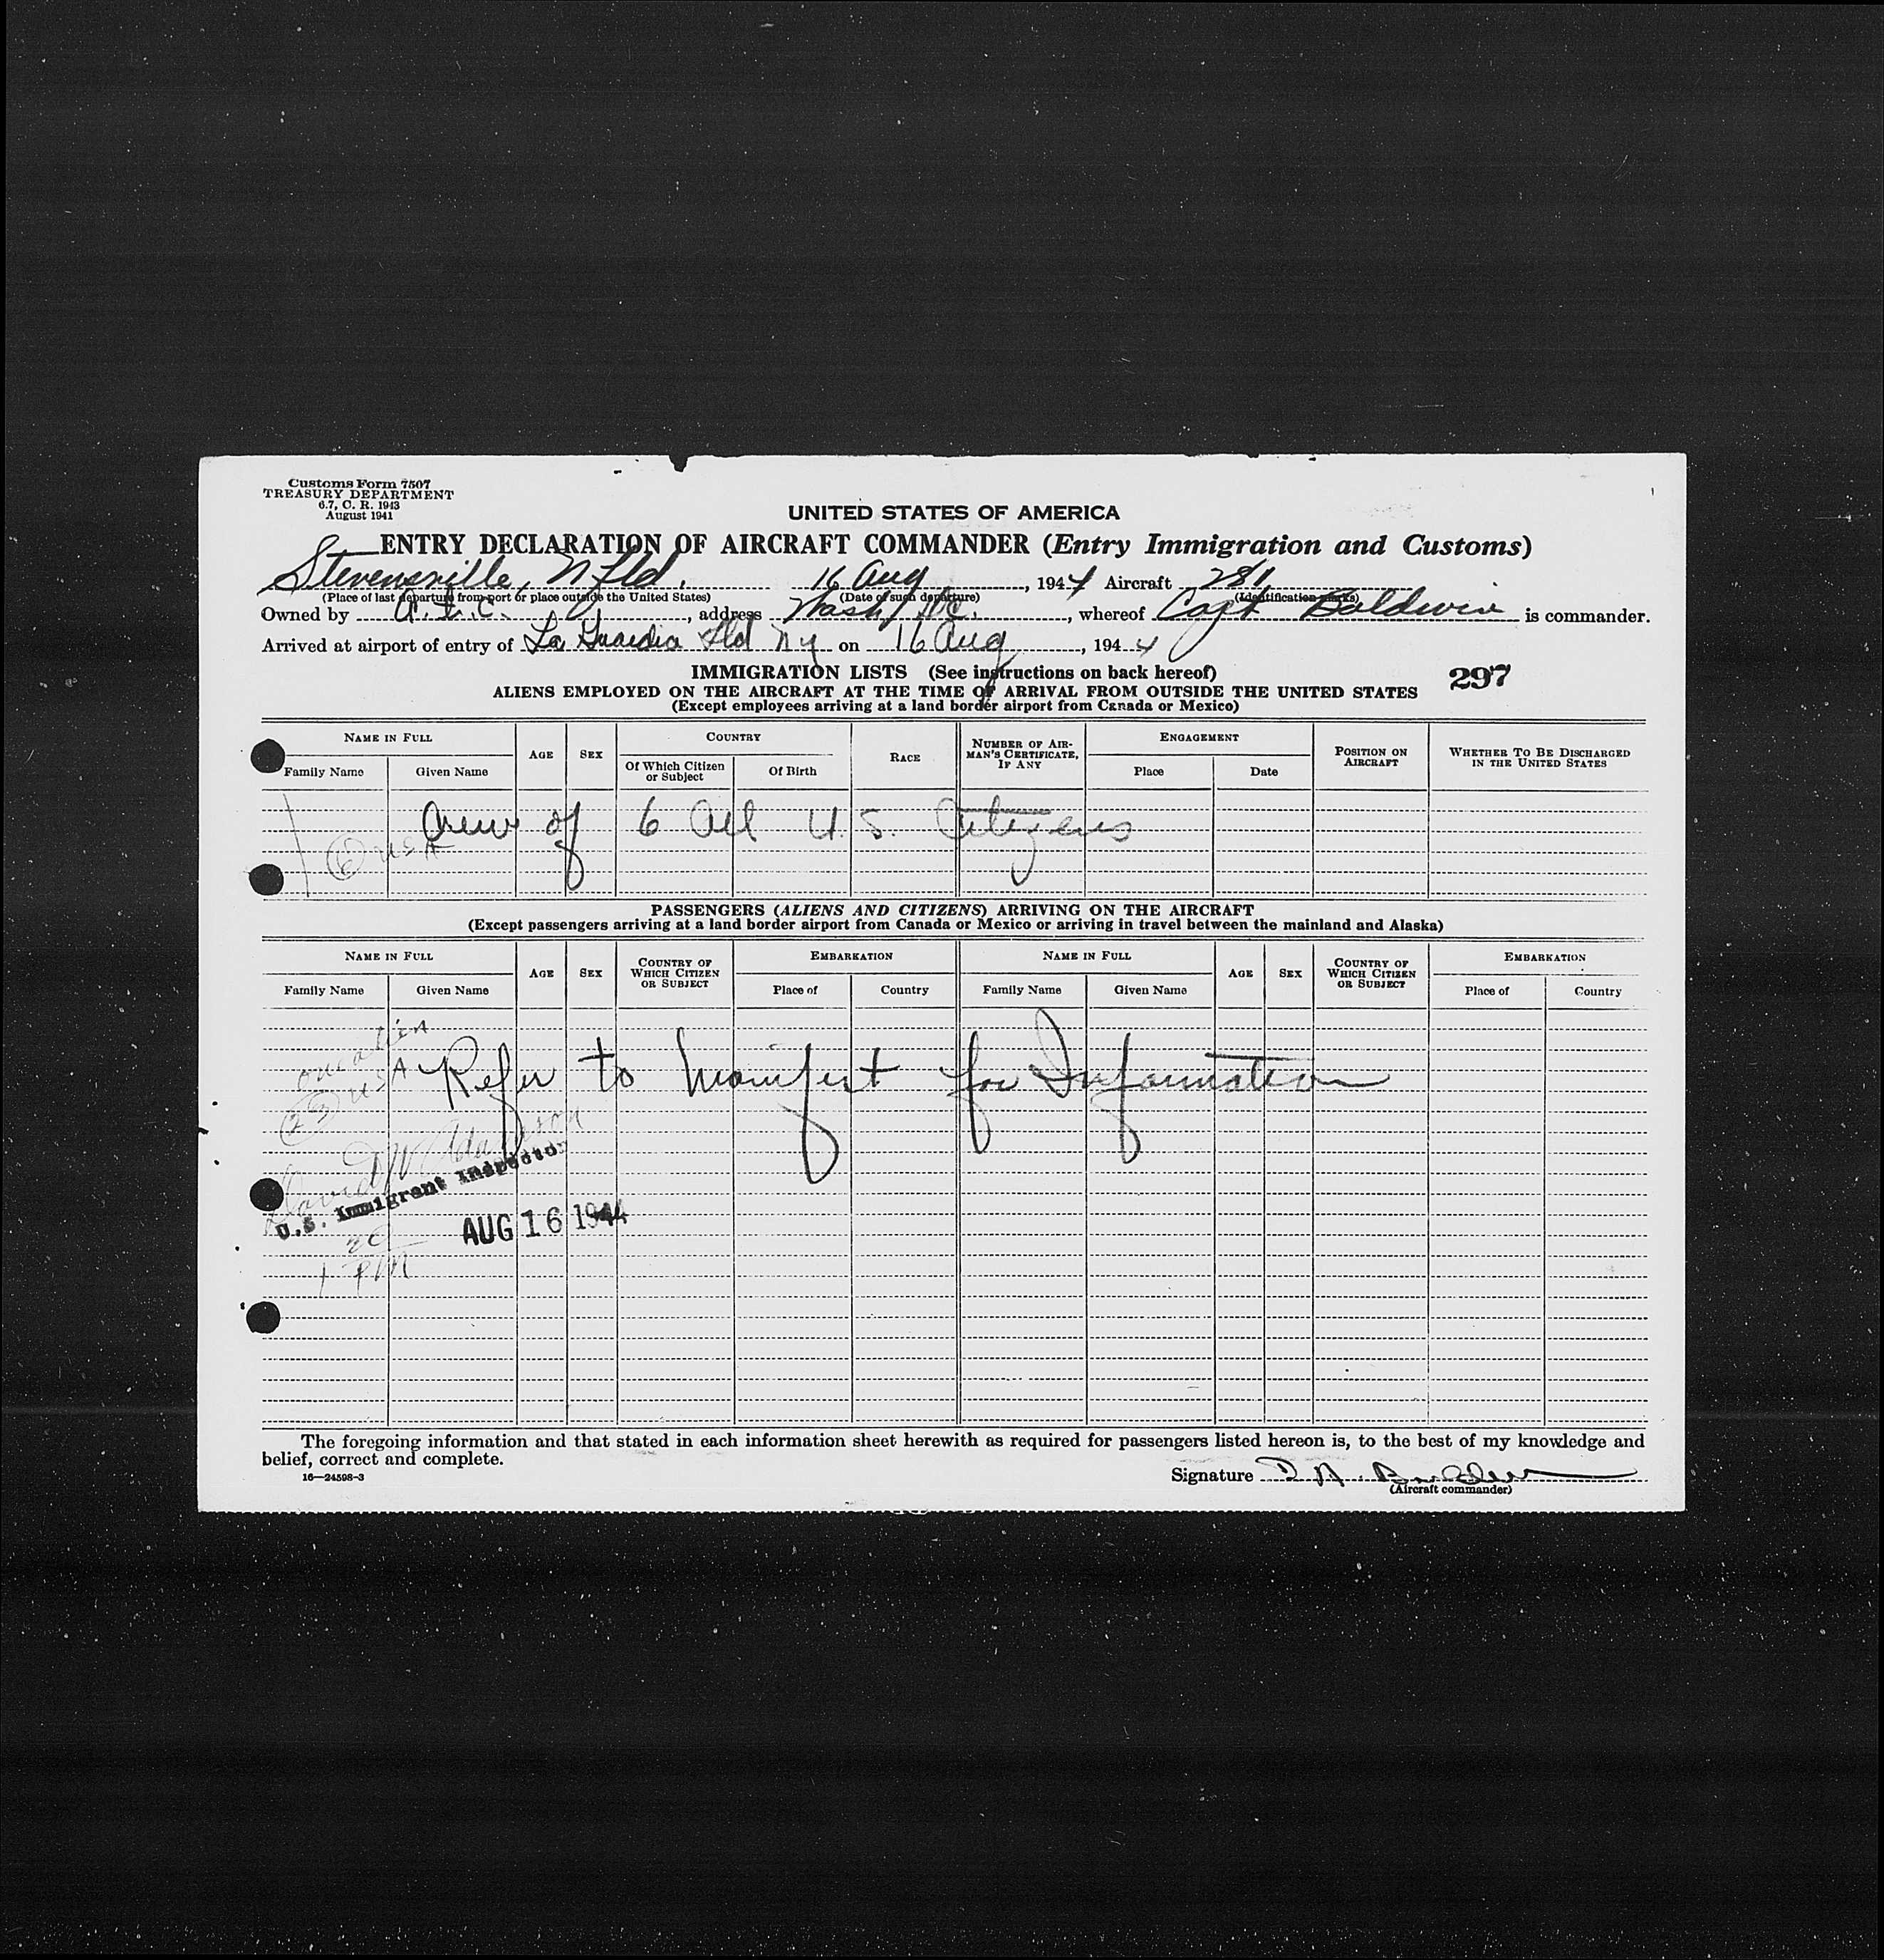 Customs Form 7507
TREASURY DEPARTMENT
6.7, C. R. 1943
August 1941
UNITED STATES OF AMERICA
ENTRY DECLARATION OF AIRCRAFT COMMANDER (Entry Immigration and Customs)
Stevensville, Nfld. 16 Aug, 1944 Aircraft 281
(Place of last departure from port or place outside the United States) (Date of such departure) (Identification marks)
Owned by A.T.C., address Wash, DC., whereof Capt Baldwin is commander.
Arrived at airport of entry of La Guardia Fld NY on 16 Aug, 1944
IMMIGRATION LISTS (See instructions on back hereof)
297
ALIENS EMPLOYED ON THE AIRCRAFT AT THE TIME OF ARRIVAL FROM OUTSIDE THE UNITED STATES
(Except employees arriving at a land border airport from Canada or Mexico)
NAME IN FULL AGE SEX COUNTRY RACE NUMBER OF AIRMAN'S CERTIFICATE, IF ANY ENGAGEMENT POSITION ON AIRCRAFT WHETHER TO BE DISCHARGED IN THE UNITED STATES
Family Name Given Name Of Which Citizen or Subject Of Birth Place Date
Crew of 6 All U.S. Citizens
6 USA
PASSENGERS (ALIENS AND CITIZENS) ARRIVING ON THE AIRCRAFT
(Except passengers arriving at a land border airport from Canada or Mexico or arriving in travel between the mainland and Alaska)
NAME IN FULL AGE SEX COUNTRY OF WHICH CITIZEN OR SUBJECT EMBARKATION NAME IN FULL AGE SEX COUNTRY OF WHICH CITIZEN OR SUBJECT EMBARKATION
Family Name Given Name Place of Country Family Name Given Name Place of Country
one alien
23 USA
Refer to Manifest for Information
David W Adamson
U.S. Immigrant Inspector
AUG 16 1944
1 PM
The foregoing information and that stated in each information sheet herewith as required for passengers listed hereon is, to the best of my knowledge and
belief, correct and complete.
16—24598-3
Signature
(Aircraft commander)